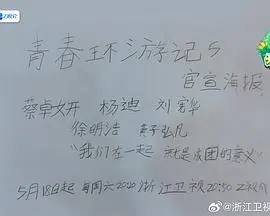 青春环游记5
官宣海报
蔡卓妍 杨迪 刘宪华
徐明浩 黄子弘凡
"我们在一起 就是成团的意义"
5月18日起 每周六20:20 浙江卫视 20:50 Z视介
@浙江卫视